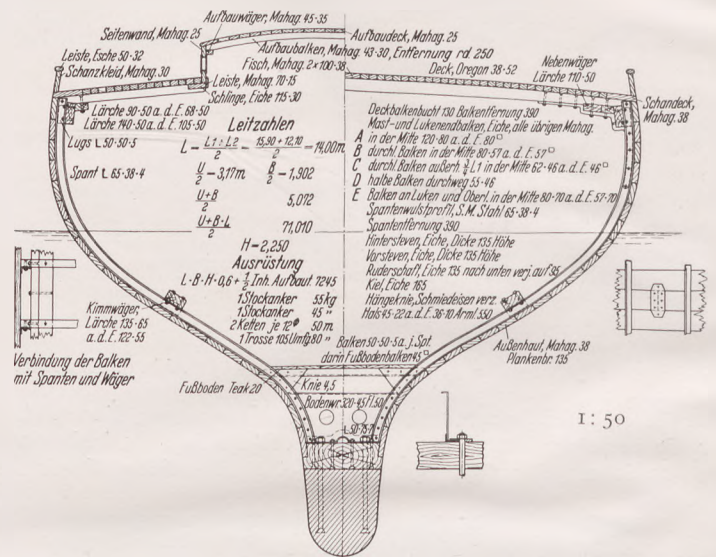 Aufbauwäger, Mahag. 45·35
Seitenwand, Mahag. 25
Aufbaudeck, Mahag. 25
Aufbaubalken, Mahag. 43·30, Entfernung rd. 250
Fisch, Mahag. 2×100·38
Leiste, Esche 50·32
Schanzkleid, Mahag. 30
Leiste, Mahag. 70·15
Schlinge, Eiche 115·30
Deck, Oregon 38·52
Nebenwäger
Lärche 110·50
Schandeck,
Mahag. 38
Lärche 90·50 a.d.E. 68·50
Lärche 140·50 a.d.E. 105·50
Lugs L 50·50·5
Spant L 65·38·4
Leitzahlen
L = L1 + L2 / 2 = 15,90 + 12,10 / 2 = 14,00m
U/2 = 3,17m B/2 = 1,902
U+B/2 5,072
U+B·L/2 71,010
H = 2,250
Ausrüstung
L·B·H·0,6 + 1/2 Inh. Aufbaut. 7245
1 Stockanker 55 kg
1 Stockanker 45 "
2 Ketten je 12 50 m.
1 Trosse 105 Umfg 80 "
Deckbalkenbucht 130 Balkentfernung 390
Mast- und Lukenendbalken, Eiche, alle übrigen Mahag.
A in der Mitte 120·80 a.d.E. 80□
B durchl. Balken in der Mitte 80·57 a.d.E. 57□
C durchl. Balken außerh. 3/4 L1 in der Mitte 62·46 a.d.E. 46□
D halbe Balken durchweg 55·46
E Balken an Luken und Oberl. in der Mitte 80·70 a.d.E. 57·70
Spantenwulstprofil, S.M. Stahl 65·38·4
Spantentfernung 390
Hintersteven, Eiche, Dicke 135 Höhe
Vorsteven, Eiche, Dicke 135 Höhe
Ruderschaft, Eiche 135 nach unten verj. auf 95
Kiel, Eiche 165
Hängeknie, Schmiedeisen verz.
Hals 45·22 a.d.E. 36·10 Arml. 550
Kimmwäger,
Lärche 135·65
a.d.E. 122·55
Verbindung der Balken
mit Spanten und Wäger
Balken 50·50·5 a. j. Spt.
darin Fußbodenbalken 45□
Außenhaut, Mahag. 38
Plankenbr. 135
Fußboden Teak 20
Knie 4,5
Bodenwr. 320·4,5 fl. 50
L 50·75·7
1 : 50